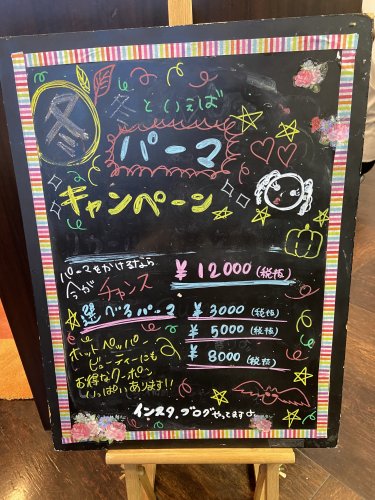 冬
冬といえば
パーマ
キャンペーン
パーマをかけるなら
今がチャンス
¥12000(税抜)
選べるパーマ
¥3000(税抜)
¥5000(税抜)
¥8000(税抜)
ホットペッパー
ビューティーにも
お得なクーポン
いっぱいあります!!
インスタ、ブログやってます